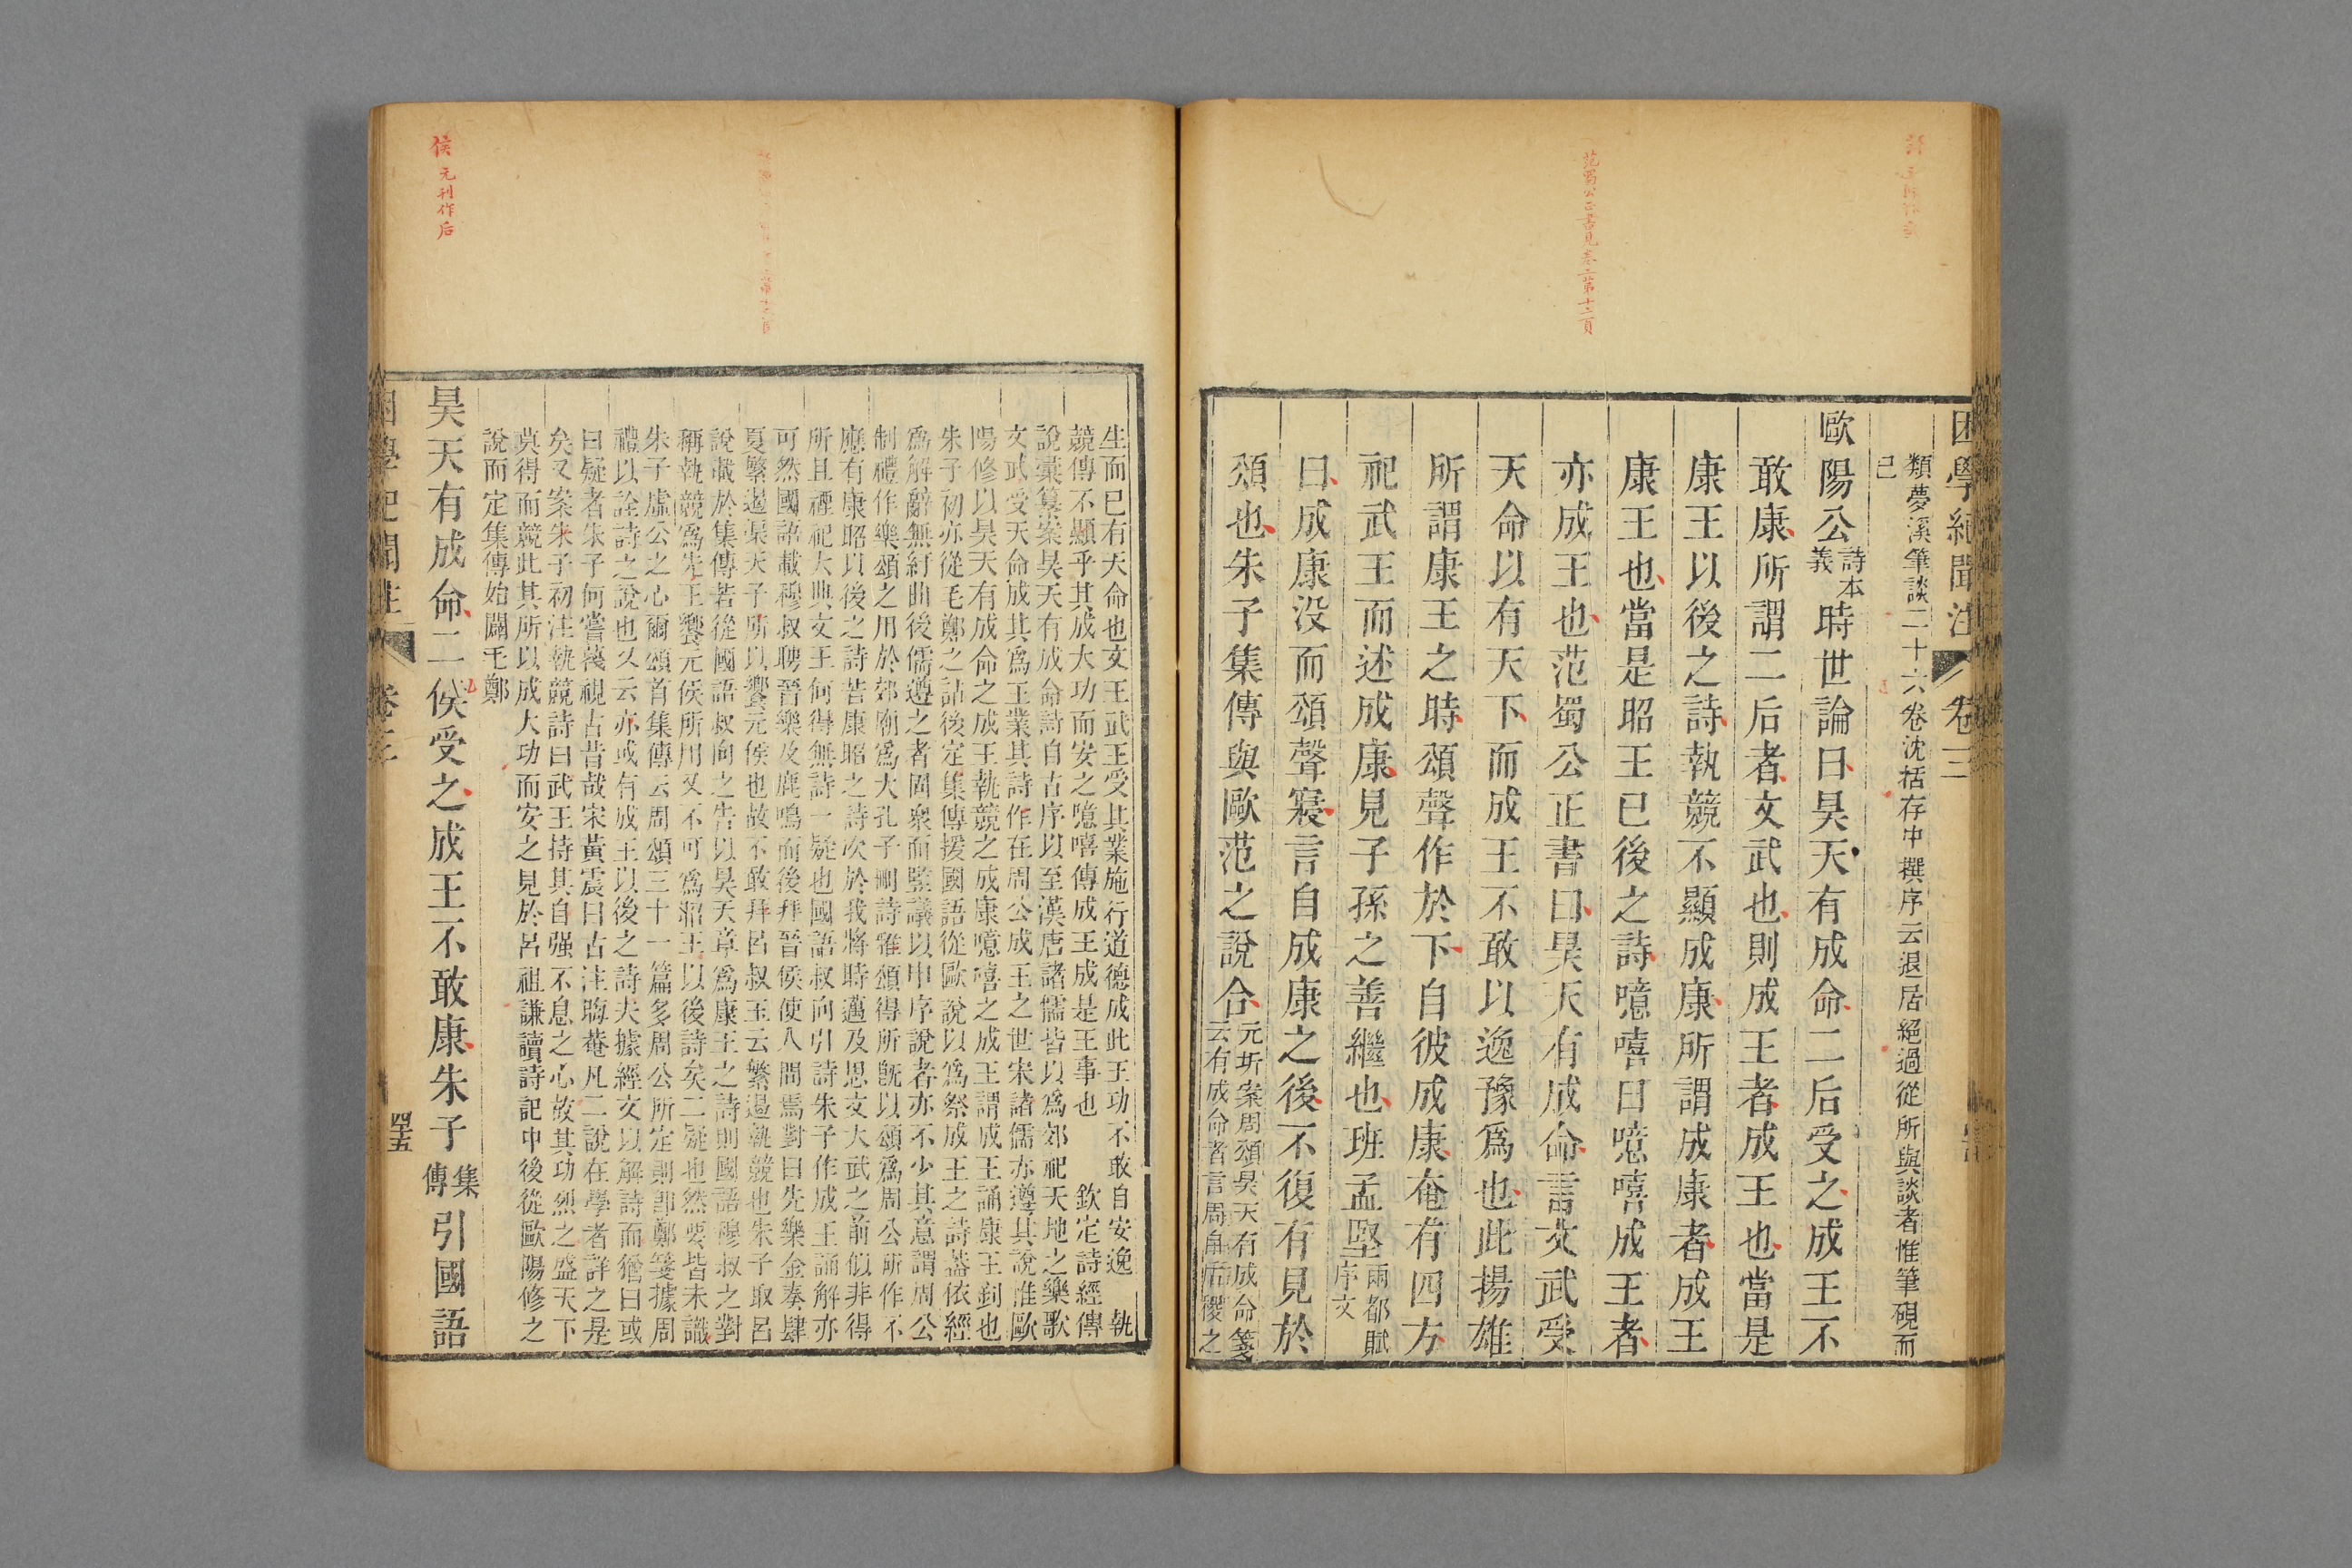 困學紀聞注 卷三
類夢溪筆談二十六卷沈括存中撰序云退居絕過從所與談者惟筆硯而
已
歐陽公詩本義時世論曰昊天有成命二后受之成王不
敢康所謂二后者文武也則成王者成王也當是
康王以後之詩執競不顯成康所謂成康者成王
康王也當是昭王已後之詩噫嘻曰噫嘻成王者
亦成王也范蜀公正書曰昊天有成命言文武受
天命以有天下而成王不敢以逸豫為也此揚雄
所謂康王之時頌聲作於下自彼成康奄有四方
祀武王而述成康見子孫之善繼也班孟堅兩都賦序文
曰成康没而頌聲寢言自成康之後不復有見於
頌也朱子集傳與歐范之說合元圻案周頌昊天有成命箋
云有成命者言周自后稷之
范蜀公正書見卷二第十六頁
生而已有天命也文王武王受其業施行道德成此王功不敢自安逸 執
競傳不顯乎其成大功而安之噫嘻傳成王成是王事也 欽定詩經傳
說彙纂案昊天有成命詩自古序以至漢唐諸儒皆以為郊祀天地之樂歌
文武受天命成其為王業其詩作在周公成王之世宋諸儒亦遵其說惟歐
陽修以昊天有成命之成王執競之成康噫嘻之成王謂成王誦康王釗也
朱子初亦從毛鄭之詁後定集傳援國語從歐說以為祭成王之詩葢依經
為解辭無紆曲後儒遵之者固衆而監議以申序說者亦不少其意謂周公
制禮作樂頌之用於郊廟為大孔子刪詩雅頌得所既以頌為周公所作不
應有康昭以後之詩若康昭之詩次於我將時邁及思文大武之前似非得
所且禋祀大典文王何得無詩一疑也國語叔向引詩朱子作成王誦解亦
可然國語載穆叔聘晉樂及鹿鳴而後拜晉侯使人問焉對曰先樂金奏肆
夏繁遏渠天子所以饗元侯也故不敢拜呂叔玉云繁遏執競也朱子取呂
說載於集傳若從國語叔向之告以昊天章為康王之詩則國語穆叔之對
稱執競為先王饗元侯所用又不可為昭王以後詩矣二疑也然要皆未識
朱子虛公之心爾頌首集傳云周頌三十一篇多周公所定則卽鄭箋據周
禮以詮詩之說也又云亦或有成王以後之詩夫據經文以解詩而猶曰或
曰疑者朱子何嘗蔑視古昔哉宋黃震曰古注晦菴凡二說在學者詳之是
矣又案朱子初注執競詩曰武王持其自强不息之心故其功烈之盛天下
莫得而競此其所以成大功而安之見於呂祖謙讀詩記中後從歐陽修之
說而定集傳始闢毛鄭
昊天有成命二侯受之成王不敢康朱子集傳引國語
侯 元刊作后
困學紀聞注 卷三 四十五